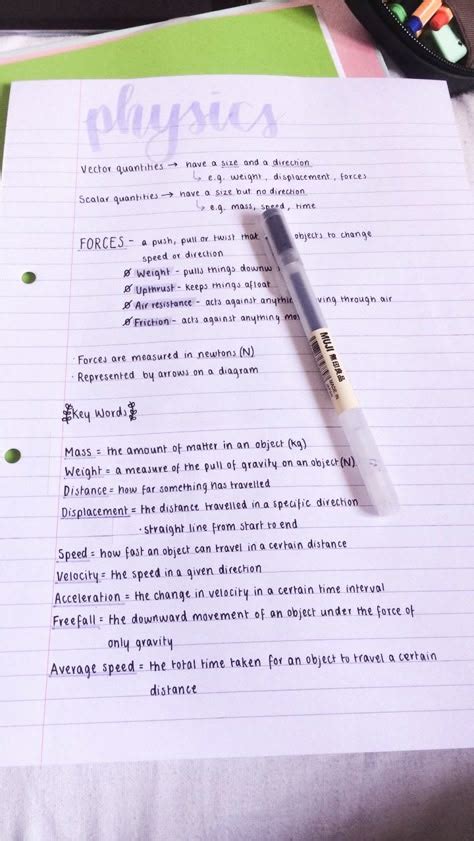 physics
Vector quantities → have a size and a direction
↳ e.g. weight, displacement, forces
Scalar quantities → have a size but no direction
↳ e.g. mass, speed, time
FORCES - a push, pull or twist that objects to change
speed or direction
Weight - pulls things downw
Upthrust - keeps things afloat
Air resistance - acts against anythin ving through air
Friction - acts against anything mo
· Forces are measured in newtons (N)
· Represented by arrows on a diagram
Key Words
Mass = the amount of matter in an object (kg)
Weight = a measure of the pull of gravity on an object (N)
Distance = how far something has travelled
Displacement = the distance travelled in a specific direction
· straight line from start to end
Speed = how fast an object can travel in a certain distance
Velocity = the speed in a given direction
Acceleration = the change in velocity in a certain time interval
Freefall = the downward movement of an object under the force of
only gravity
Average speed = the total time taken for an object to travel a certain
distance
MUJI 無印良品